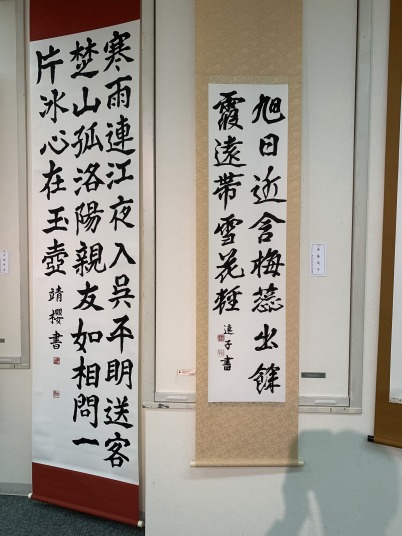 旭日近含梅蕊出餘
霞遠帯雪花軽
子書
寒雨連江夜入呉平明送客
楚山孤洛陽親友如相問一
片冰心在玉壺
靖櫻書